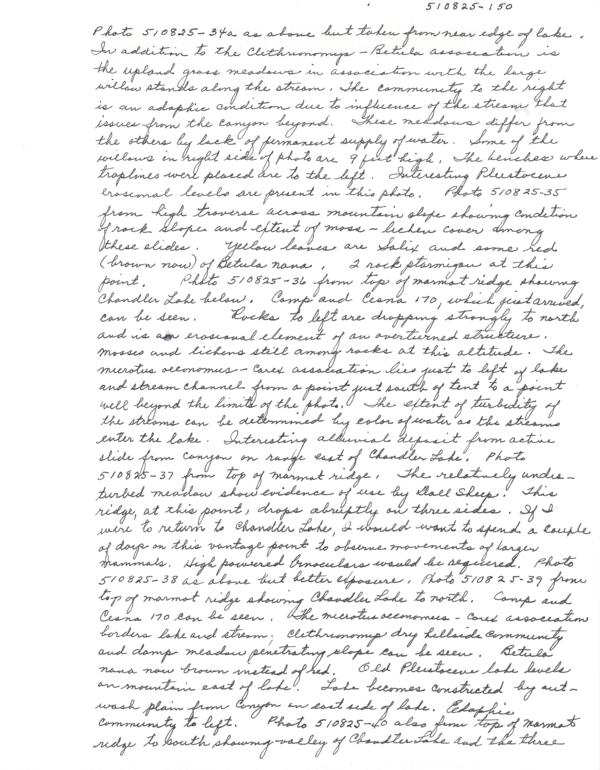 510825-150
Photo 510825-34a as above but taken from near edge of lake.
In addition to the Clethrionomys - Betula association is
the upland grass meadows in association with the large
willow stands along the stream. The community to the right
is an adaphic condition due to influence of the stream that
issues from the canyon beyond. These meadows differ from
the others by lack of permanent supply of water. Some of the
willows in right side of photo are 9 feet high. The benches where
traplines were placed are to the left. Interesting Pleistocene
erosional levels are present in this photo. Photo 510825-35
from high traverse across mountain slope showing condition
of rock slope and extent of moss - lichen cover among
these slides. Yellow leaves are Salix and some red
(brown now) of Betula nana. 2 rock ptarmigan at this
point. Photo 510825-36 from top of marmot ridge showing
Chandler Lake below. Camp and Cesna 170, which just arrived,
can be seen. Rocks to left are dropping strongly to north
and is an erosional element of an overturned structure.
mosses and lichens still among rocks at this altitude. The
microtus oeconomus - Carex association lies just to left of lake
and stream channel from a point just south of tent to a point
well beyond the limits of the photo. The extent of turbidity of
the streams can be determined by color of water as the streams
enter the lake. Interesting alluvial deposit from active
slide from canyon on range east of Chandler Lake. Photo
510825-37 from top of marmot ridge. The relatively undis-
turbed meadow show evidence of use by Dall Sheep. This
ridge, at this point, drops abruptly on three sides. If I
were to return to Chandler Lake, I would want to spend a couple
of days on this vantage point to observe movements of larger
mammals. High powered binoculars would be required. Photo
510825-38 as above but better exposure. Photo 510825-39 from
top of marmot ridge showing Chandler Lake to north. Camp and
Cesna 170 can be seen. The microtus oeconomus - Carex association
borders lake and stream; Clethrionomys dry hillside community
and damp meadow penetrating slope can be seen. Betula
nana now brown instead of red. Old Pleistocene lake levels
on mountain east of lake. Lake becomes constricted by out-
wash plain from Canyon on east side of lake. Edaphic
community to left. Photo 510825-40 also from top of marmot
ridge to south showing valley of Chandler Lake and the three